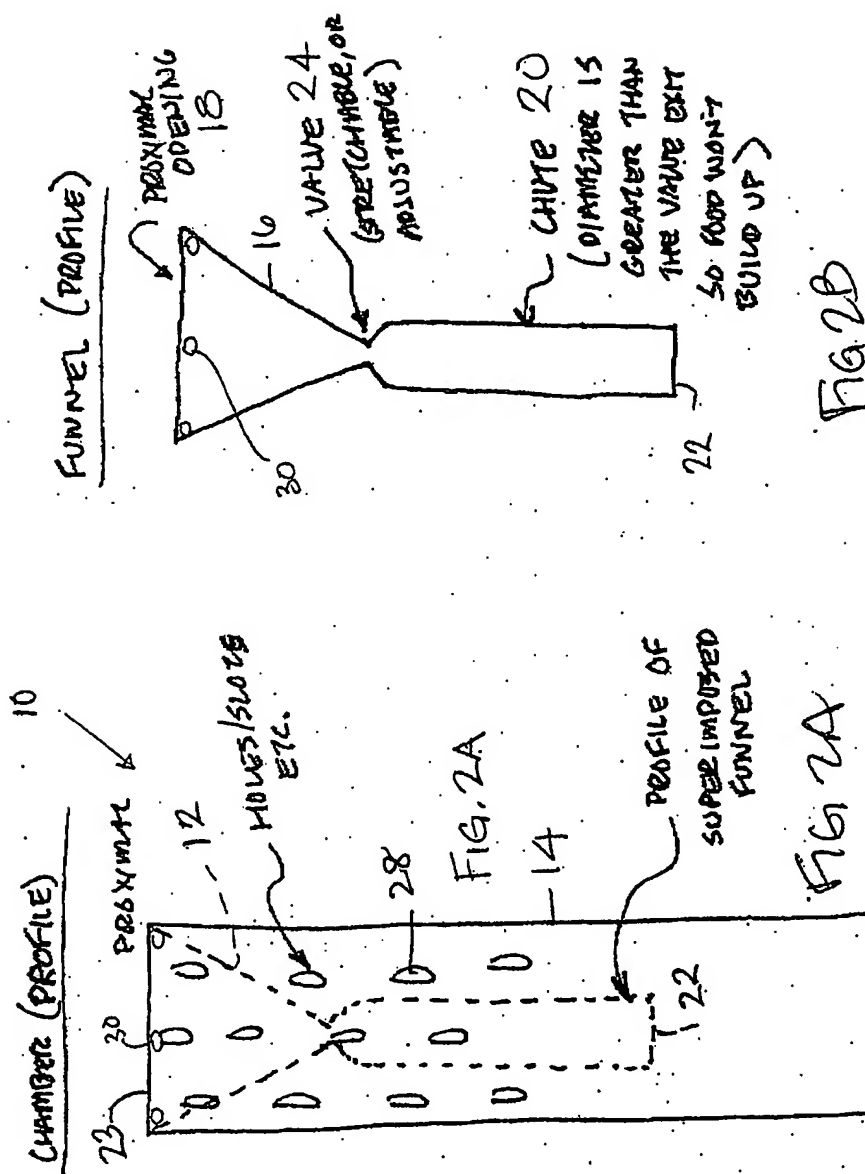 CHAMBER (PROFILE)
10
PROXIMAL
23
30
12
HOLES/SLOTS
ETC.
28
FIG. 2A
14
PROFILE OF
SUPERIMPOSED
FUNNEL
22
FIG 2A
FUNNEL (PROFILE)
PROXIMAL
OPENING
18
16
30
VALVE 24
(STRETCHABLE, OR
ADJUSTABLE)
CHUTE 20
(DIAMETER IS
GREATER THAN
THE VALVE EXIT
SO FOOD WON'T
BUILD UP)
22
FIG. 2B